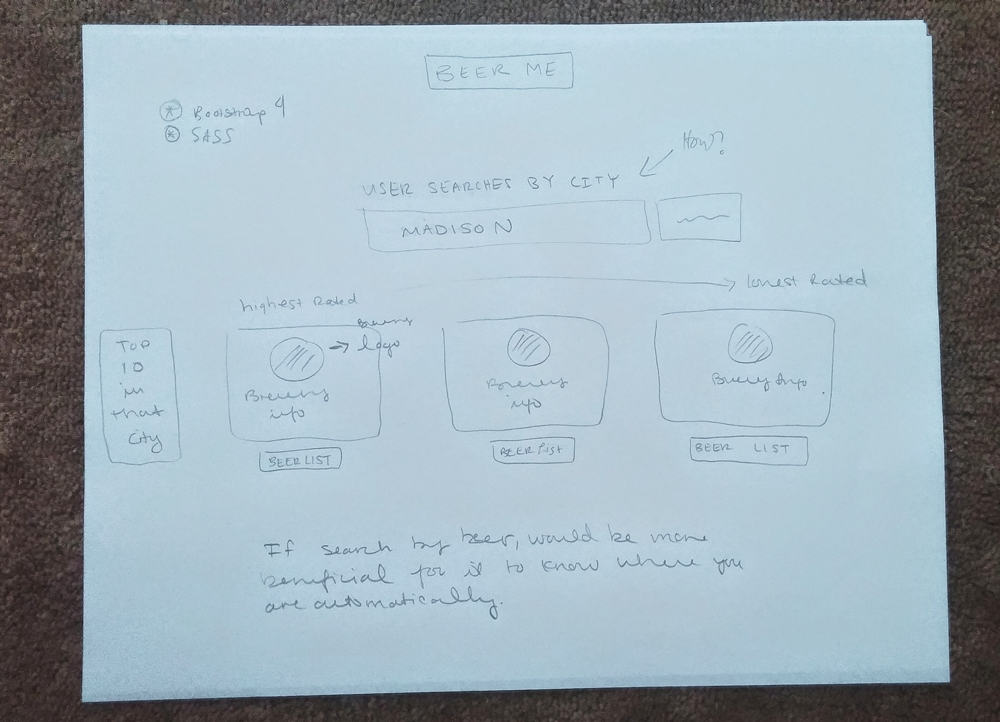 BEER ME
Bootstrap 4
SASS
How?
USER SEARCHES BY CITY
MADISON
highest Rated
lowest Rated
TOP
10
in
that
City
Brewery
logo
Brewery
info
Brewery
info
Brewery Info
BEER LIST
BEER LIST
BEER LIST
If search by beer, would be more
beneficial for it to know where you
are automatically.